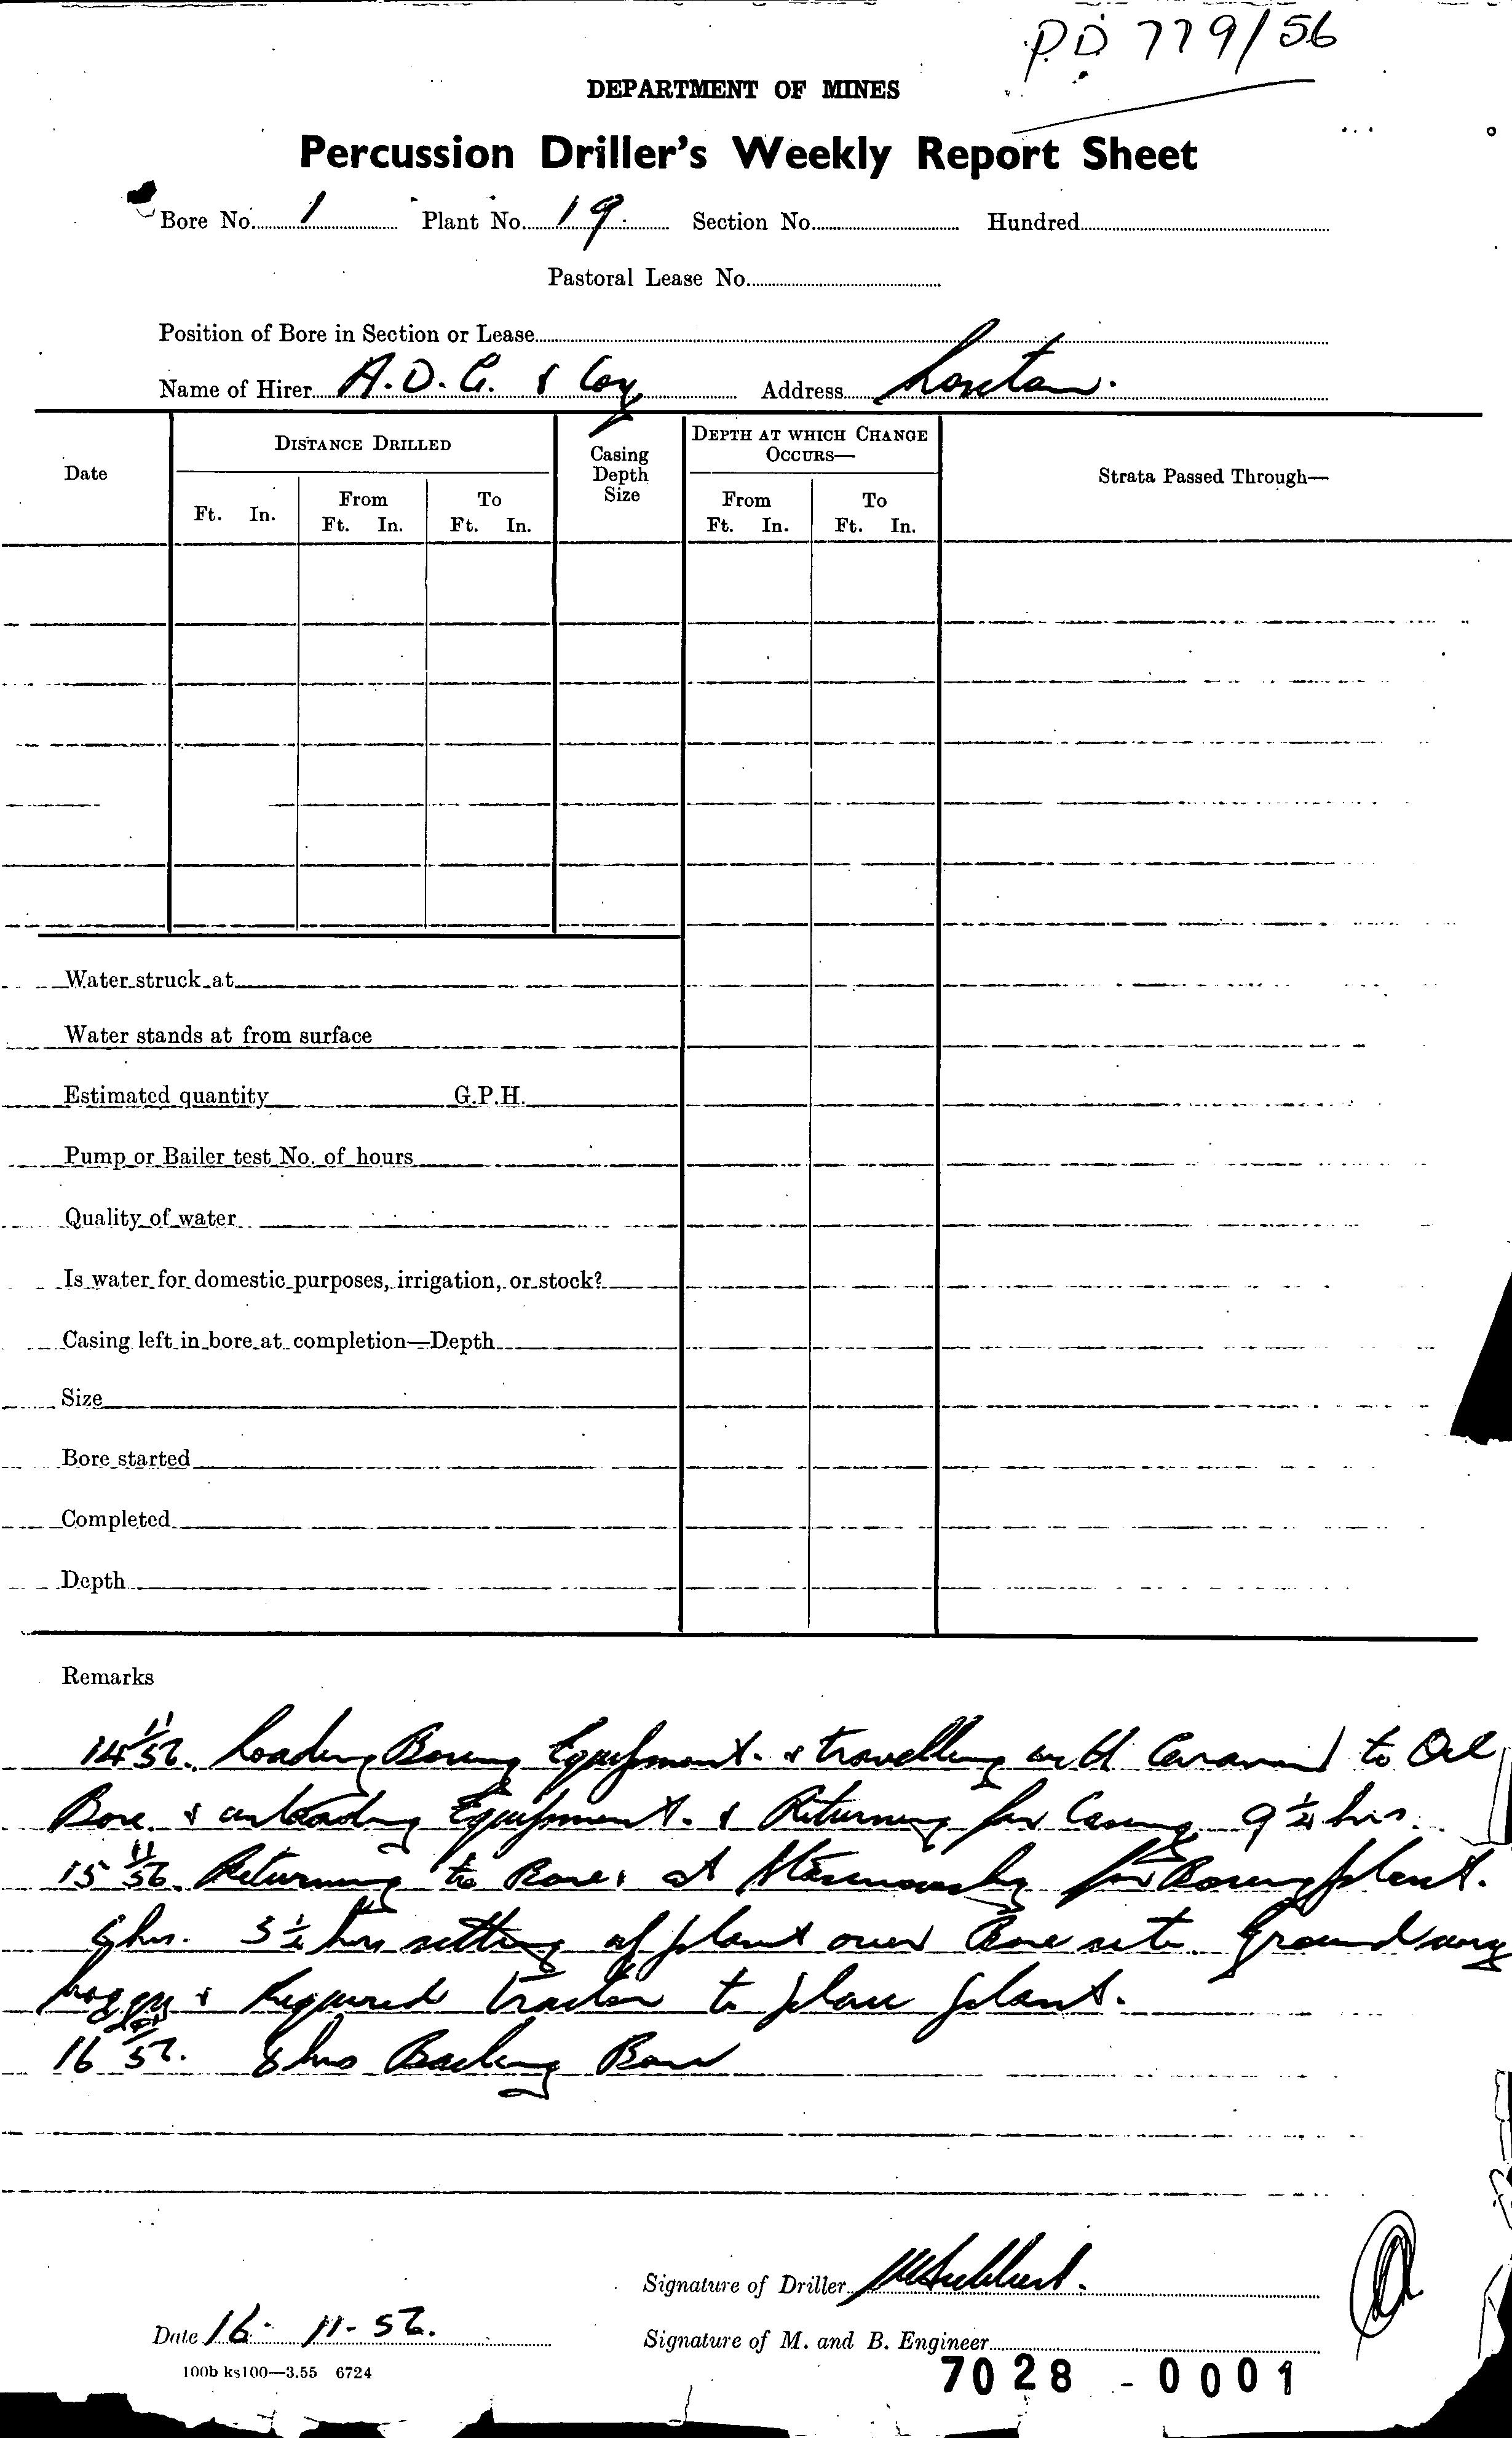 PD 779/56
DEPARTMENT OF MINES
Percussion Driller's Weekly Report Sheet
Bore No. 1 Plant No. 19. Section No. Hundred
Pastoral Lease No.
Position of Bore in Section or Lease
Name of Hirer A.O.G. & Coy Address
Date
DISTANCE DRILLED
Ft. In.
From Ft. In.
To Ft. In.
Casing Depth Size
DEPTH AT WHICH CHANGE OCCURS—
From Ft. In.
To Ft. In.
Strata Passed Through—
Water struck at
Water stands at from surface
Estimated quantity G.P.H.
Pump or Bailer test No. of hours
Quality of water
Is water for domestic purposes, irrigation, or stock?
Casing left in bore at completion—Depth
Size
Bore started
Completed
Depth
Remarks
14 11/56. Loading Boring Equipment. & travelling with Caravan to Oil
Bore. & unloading Equipment. & Returning for Casing 9 1/2 hrs.
15 11/56. Returning to Bore. at for Boring plant.
hrs. 3 1/2 hrs setting of plant over Bore site. Ground very
boggy & Required tractor to place plant.
16 11/56. 8 hrs Bore
Signature of Driller
Date 16. 11- 56.
Signature of M. and B. Engineer
100b ks100—3.55 6724
7028 - 0001